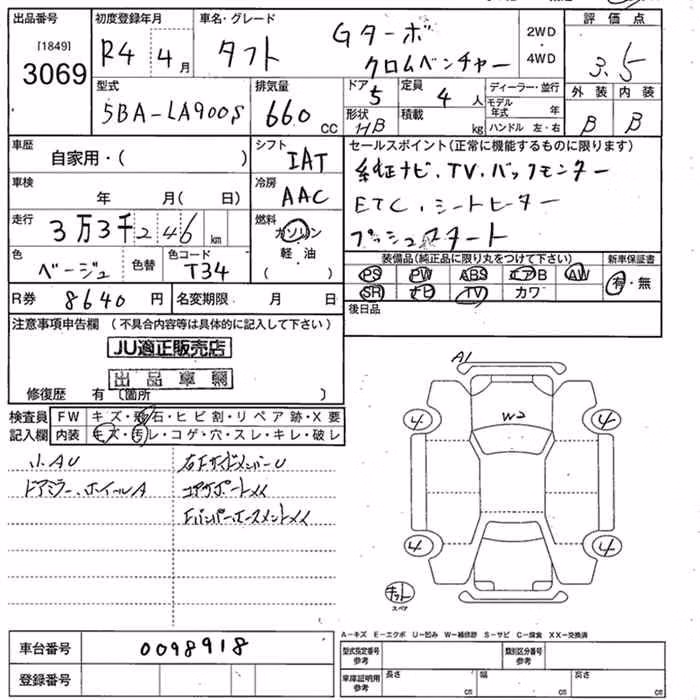 出品番号
[1849]
3069
初度登録年月
R4 4月
車名・グレード
タフト
Gターボ
クロムベンチャー
2WD
・
4WD
評価点
3.5
外装 内装
B B
型式
5BA-LA900S
排気量
660 cc
ドア
5
形状
HB
定員
4 人
積載
kg
ディーラー・並行
モデル年式 年
ハンドル 左・右
車歴
自家用・( )
シフト
IAT
車検
年 月( 日)
冷房
AAC
走行
3万3千246 km
燃料
ガソリン
軽・油
( )
色
ベージュ
色替
色コード
T34
R券 8640 円
名変期限 月 日
セールスポイント(正常に機能するものに限ります)
純正ナビ、TV、バックモニター
ETC、シートヒーター
プッシュスタート
装備品(純正品に限り丸をつけて下さい)
PS PW ABS エアB AW
SR ナビ TV カワ
新車保証書
有・無
後日品
注意事項申告欄 (不具合内容等は具体的に記入して下さい)
JU適正販売店
出品車輌
修復歴 有 〔箇所 〕
検査員
記入欄
FW キズ・飛石・ヒビ割・リペア跡・X要
内装 キズ・汚レ・コゲ・穴・スレ・キレ・破レ
小AU
ドアミラー、ホイールA
右F サイドメンバーU
コアサポートメイ
A1
W2
4
4
4
4
キット
スペア
A-キズ E-エクボ U-凹み W-補修跡 S-サビ C-腐食 XX-交換済
車台番号 0098918
登録番号
型式指定番号
参考
類別区分番号
参考
車庫証明用
参考
長さ cm
幅 cm
高さ cm